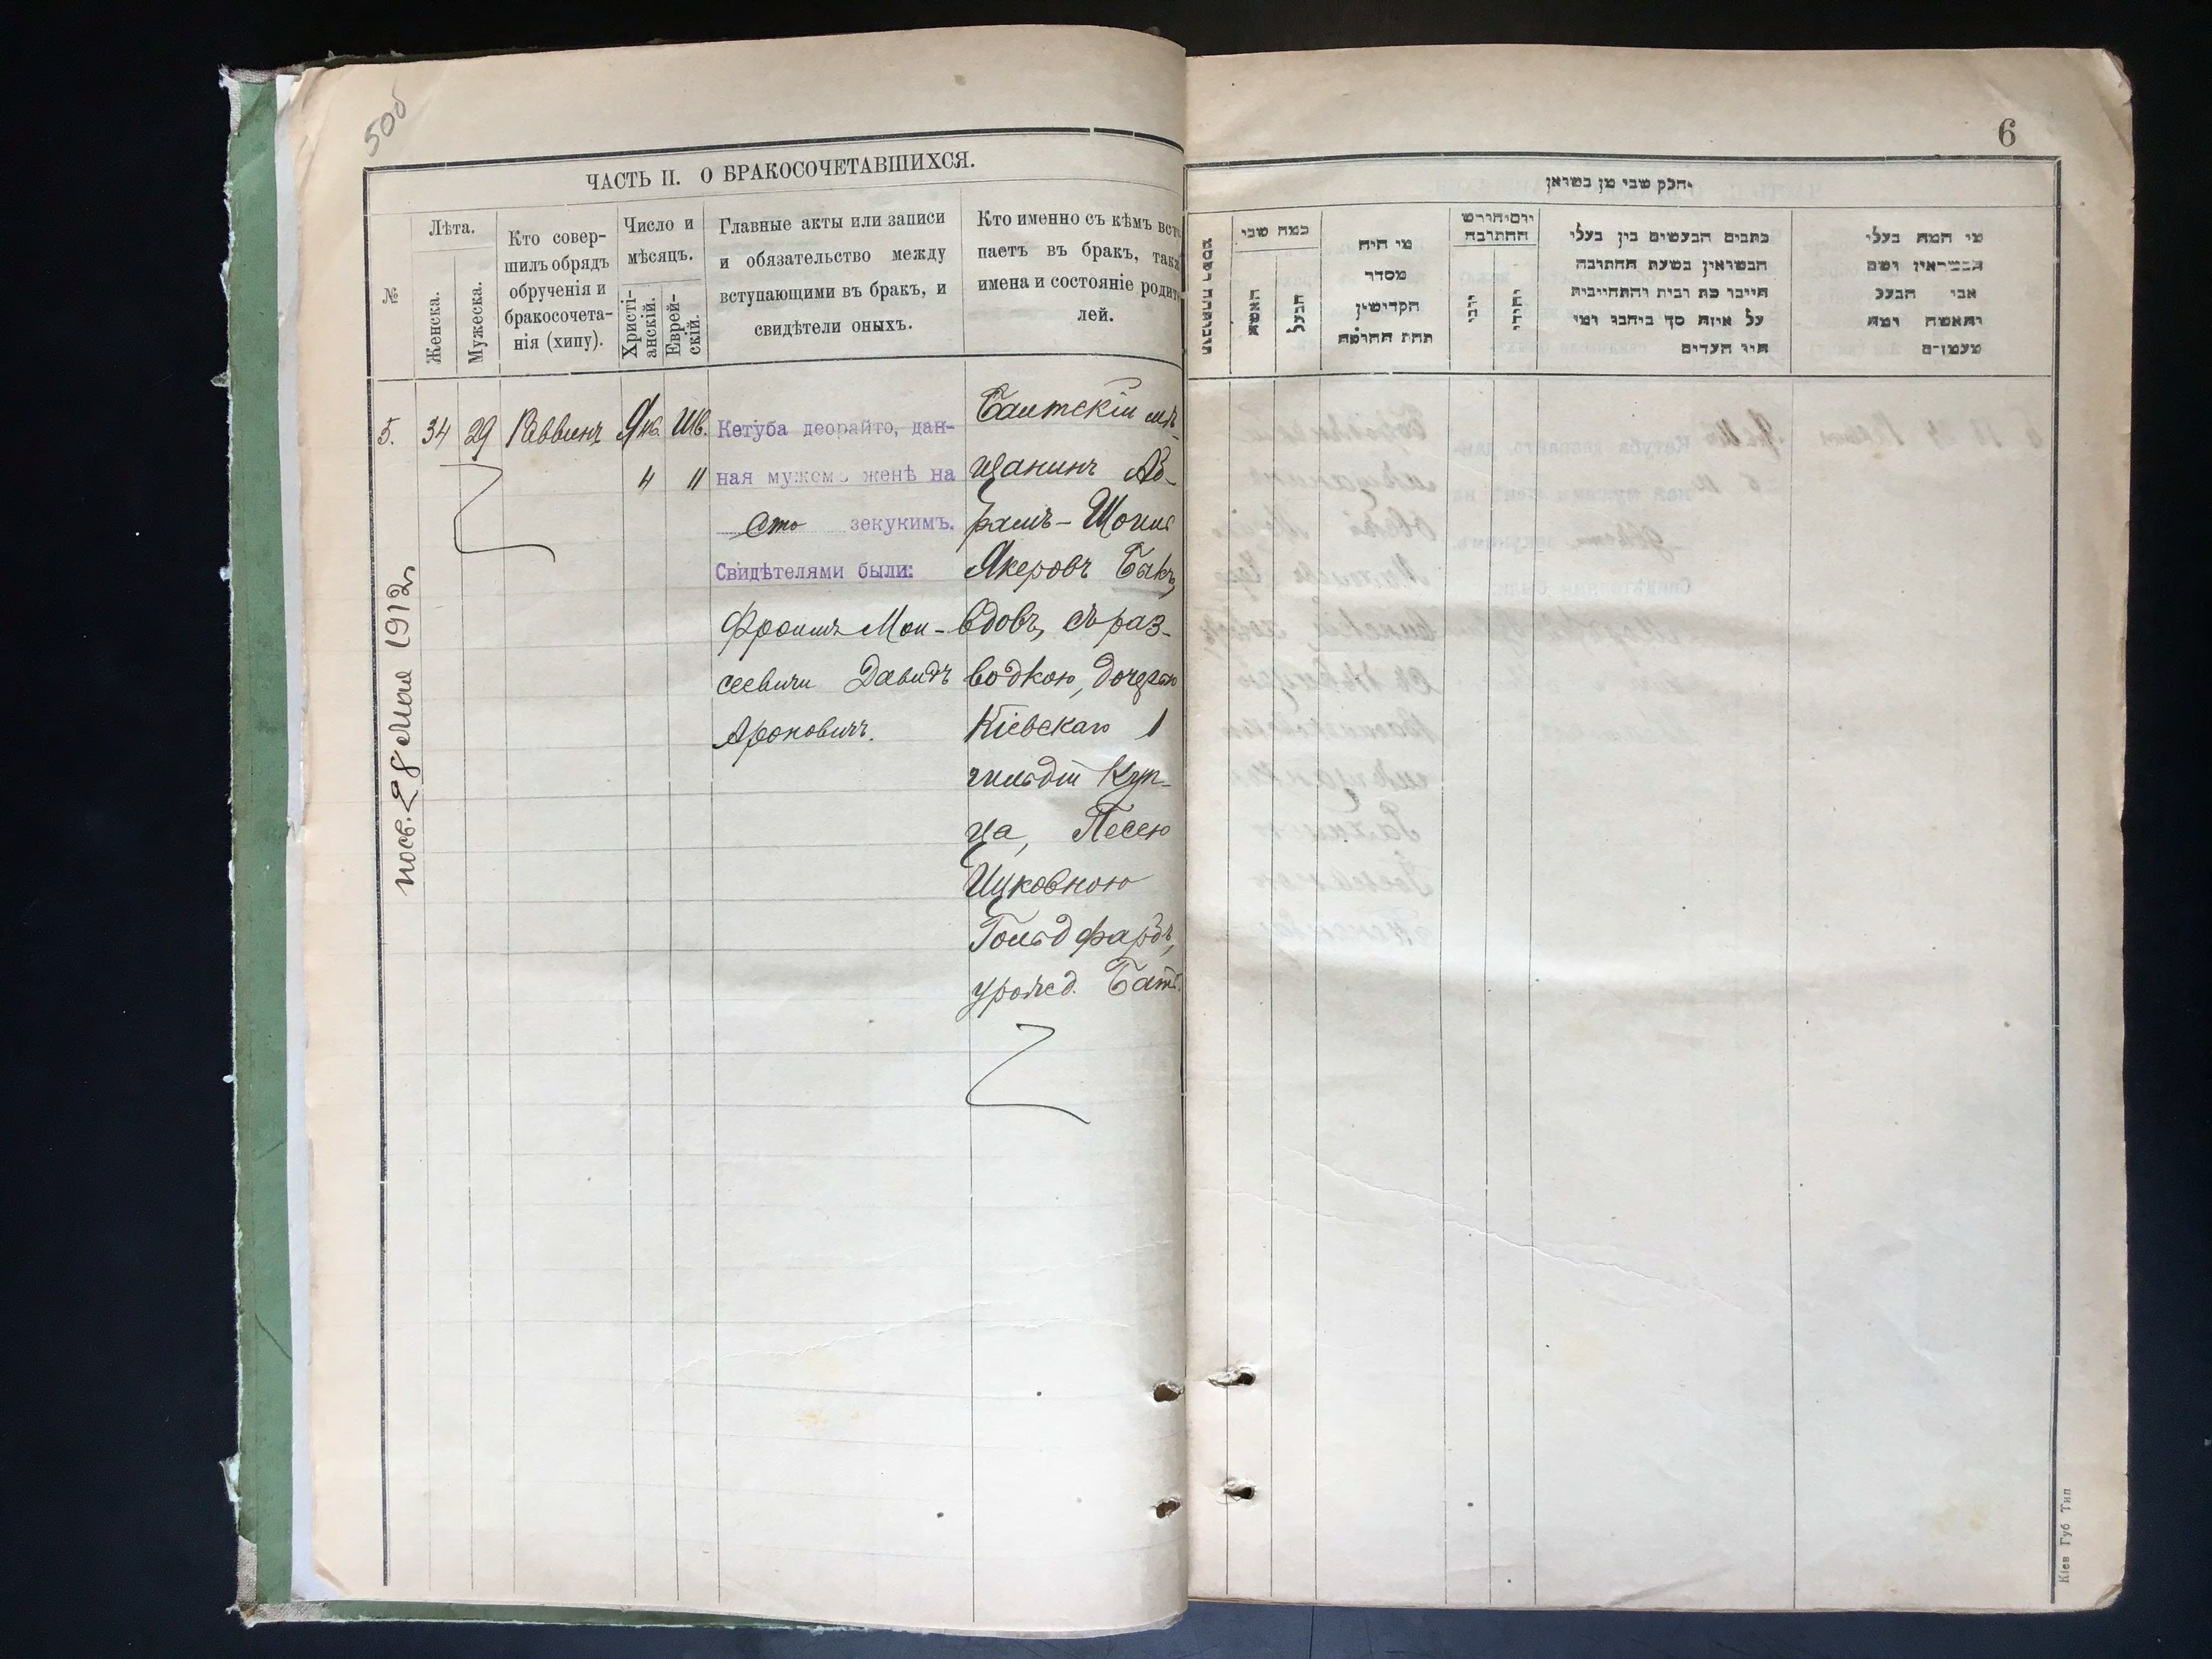 50об
ЧАСТЬ II. О БРАКОСОЧЕТАВШИХСЯ.
№
Лѣта.
Женска.
Мужеска.
Кто совер-
шилъ обрядъ
обрученія и
бракосочета-
нія (хипу).
Число и
мѣсяцъ.
Христі-
анскій.
Еврей-
скій.
Главные акты или записи
и обязательство между
вступающими въ бракъ, и
свидѣтели оныхъ.
Кто именно съ кѣмъ всту
паетъ въ бракъ, такж
имена и состояніе родите
лей.
5.
34
29
Раввинъ
Янв.
4
Шв.
11
Кетуба деорайто, дан-
ная мужемъ женѣ на
Сто зекукимъ.
Свидѣтелями были:
Фроимъ Мои-
сеевичи Давидъ
Ароновичъ.
Балтскій мѣ-
щанинъ Аб-
рамъ-Шоил
Якеровъ Быкъ,
вдовъ, съ раз-
водкою, дочерью
Кіевскаго 1
гильдіи Куп-
ца, Песею
Ицковною
Гольдфарбъ,
урожд. Балт.
28 Мая 1912г
6
וחלק שני מן נשואין
כמה שני
האשה
הבעל
מי היה
מסדר
הקדושין
תחת החופה
יום וחודש
החתונה
יהודי
כתבים הנעשים בין בעלי
הנשואין בשעת החתונה
על איזה סך ביחבו ומי
היו העדים
מי המה בעלי
הנשואין ושם
אבי הבעל
והאשה ומה
Кіев Губ Тип